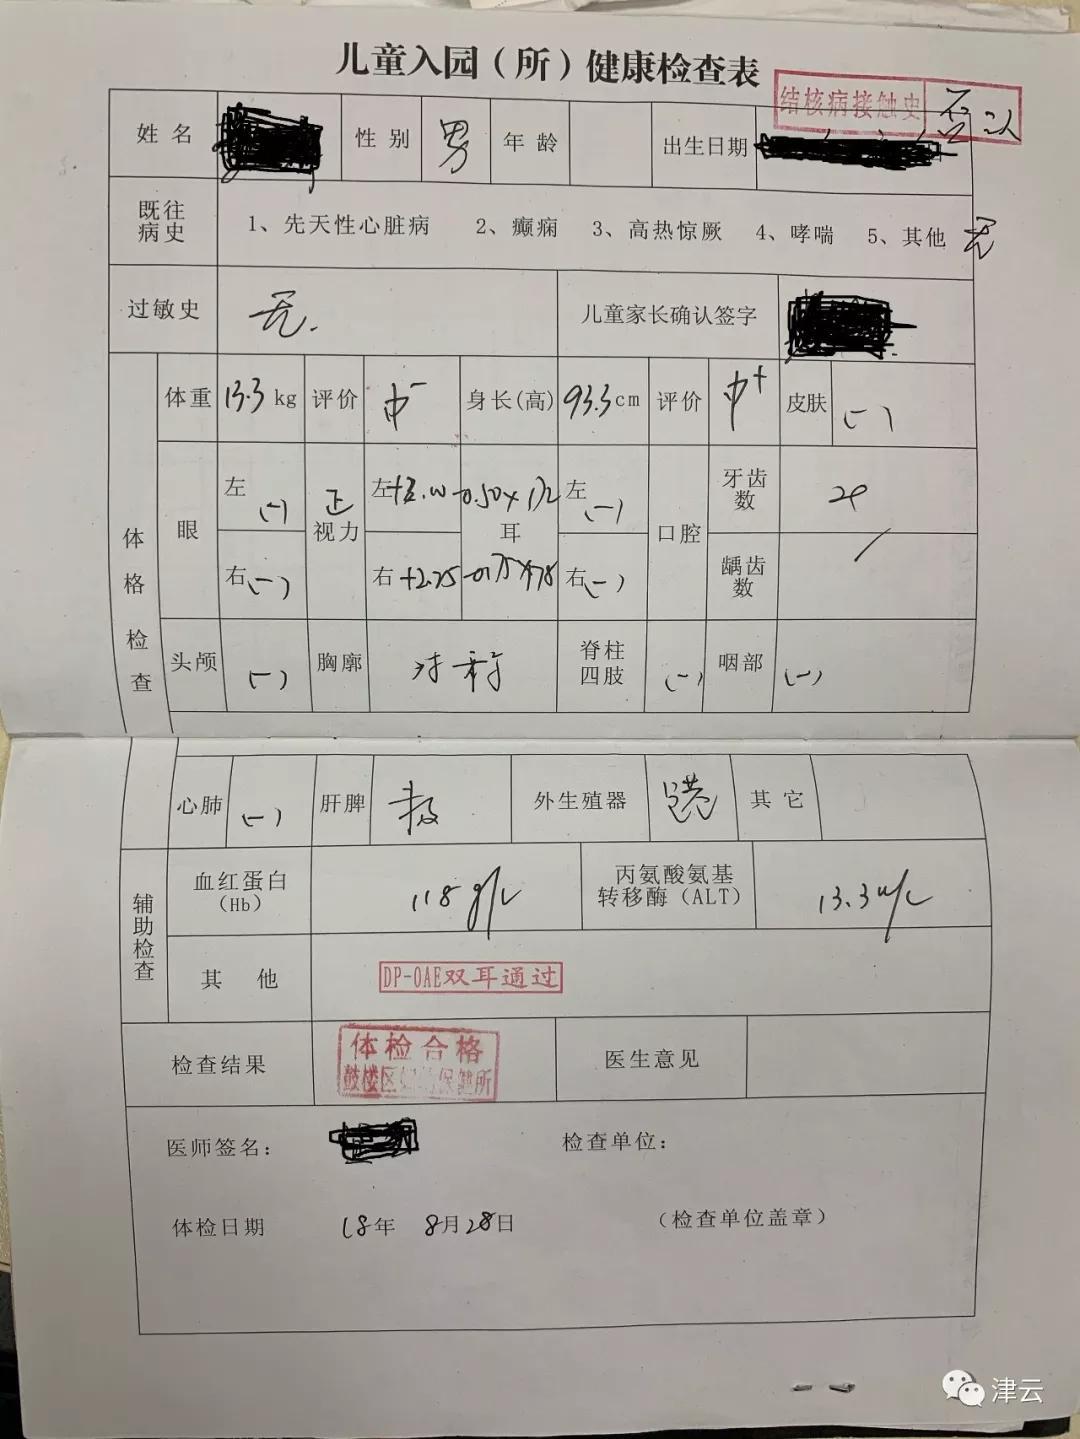 儿童入园（所）健康检查表
结核病接触史 否认
姓名 性别 男 年龄 出生日期
既往病史 1、先天性心脏病 2、癫痫 3、高热惊厥 4、哮喘 5、其他 无
过敏史 无. 儿童家长确认签字
体格检查
体重 13.3 kg 评价 中- 身长(高) 93.3 cm 评价 中+ 皮肤 (-)
眼 左 (-) 视力 正 左 -0.50× 耳 左 (-) 口腔 牙齿数
右 (-) 右 +2.75 右 (-) 龋齿数 /
头颅 (-) 胸廓 对称 脊柱四肢 (-) 咽部 (-)
心肺 (-) 肝脾 外生殖器 其它
辅助检查
血红蛋白（Hb） 118 g/L 丙氨酸氨基转移酶（ALT） 13.3 u/L
其他 DP-OAE双耳通过
检查结果 体检合格 医生意见
鼓楼区妇幼保健所
医师签名： 检查单位：
体检日期 18年 8月28日 （检查单位盖章）
津云